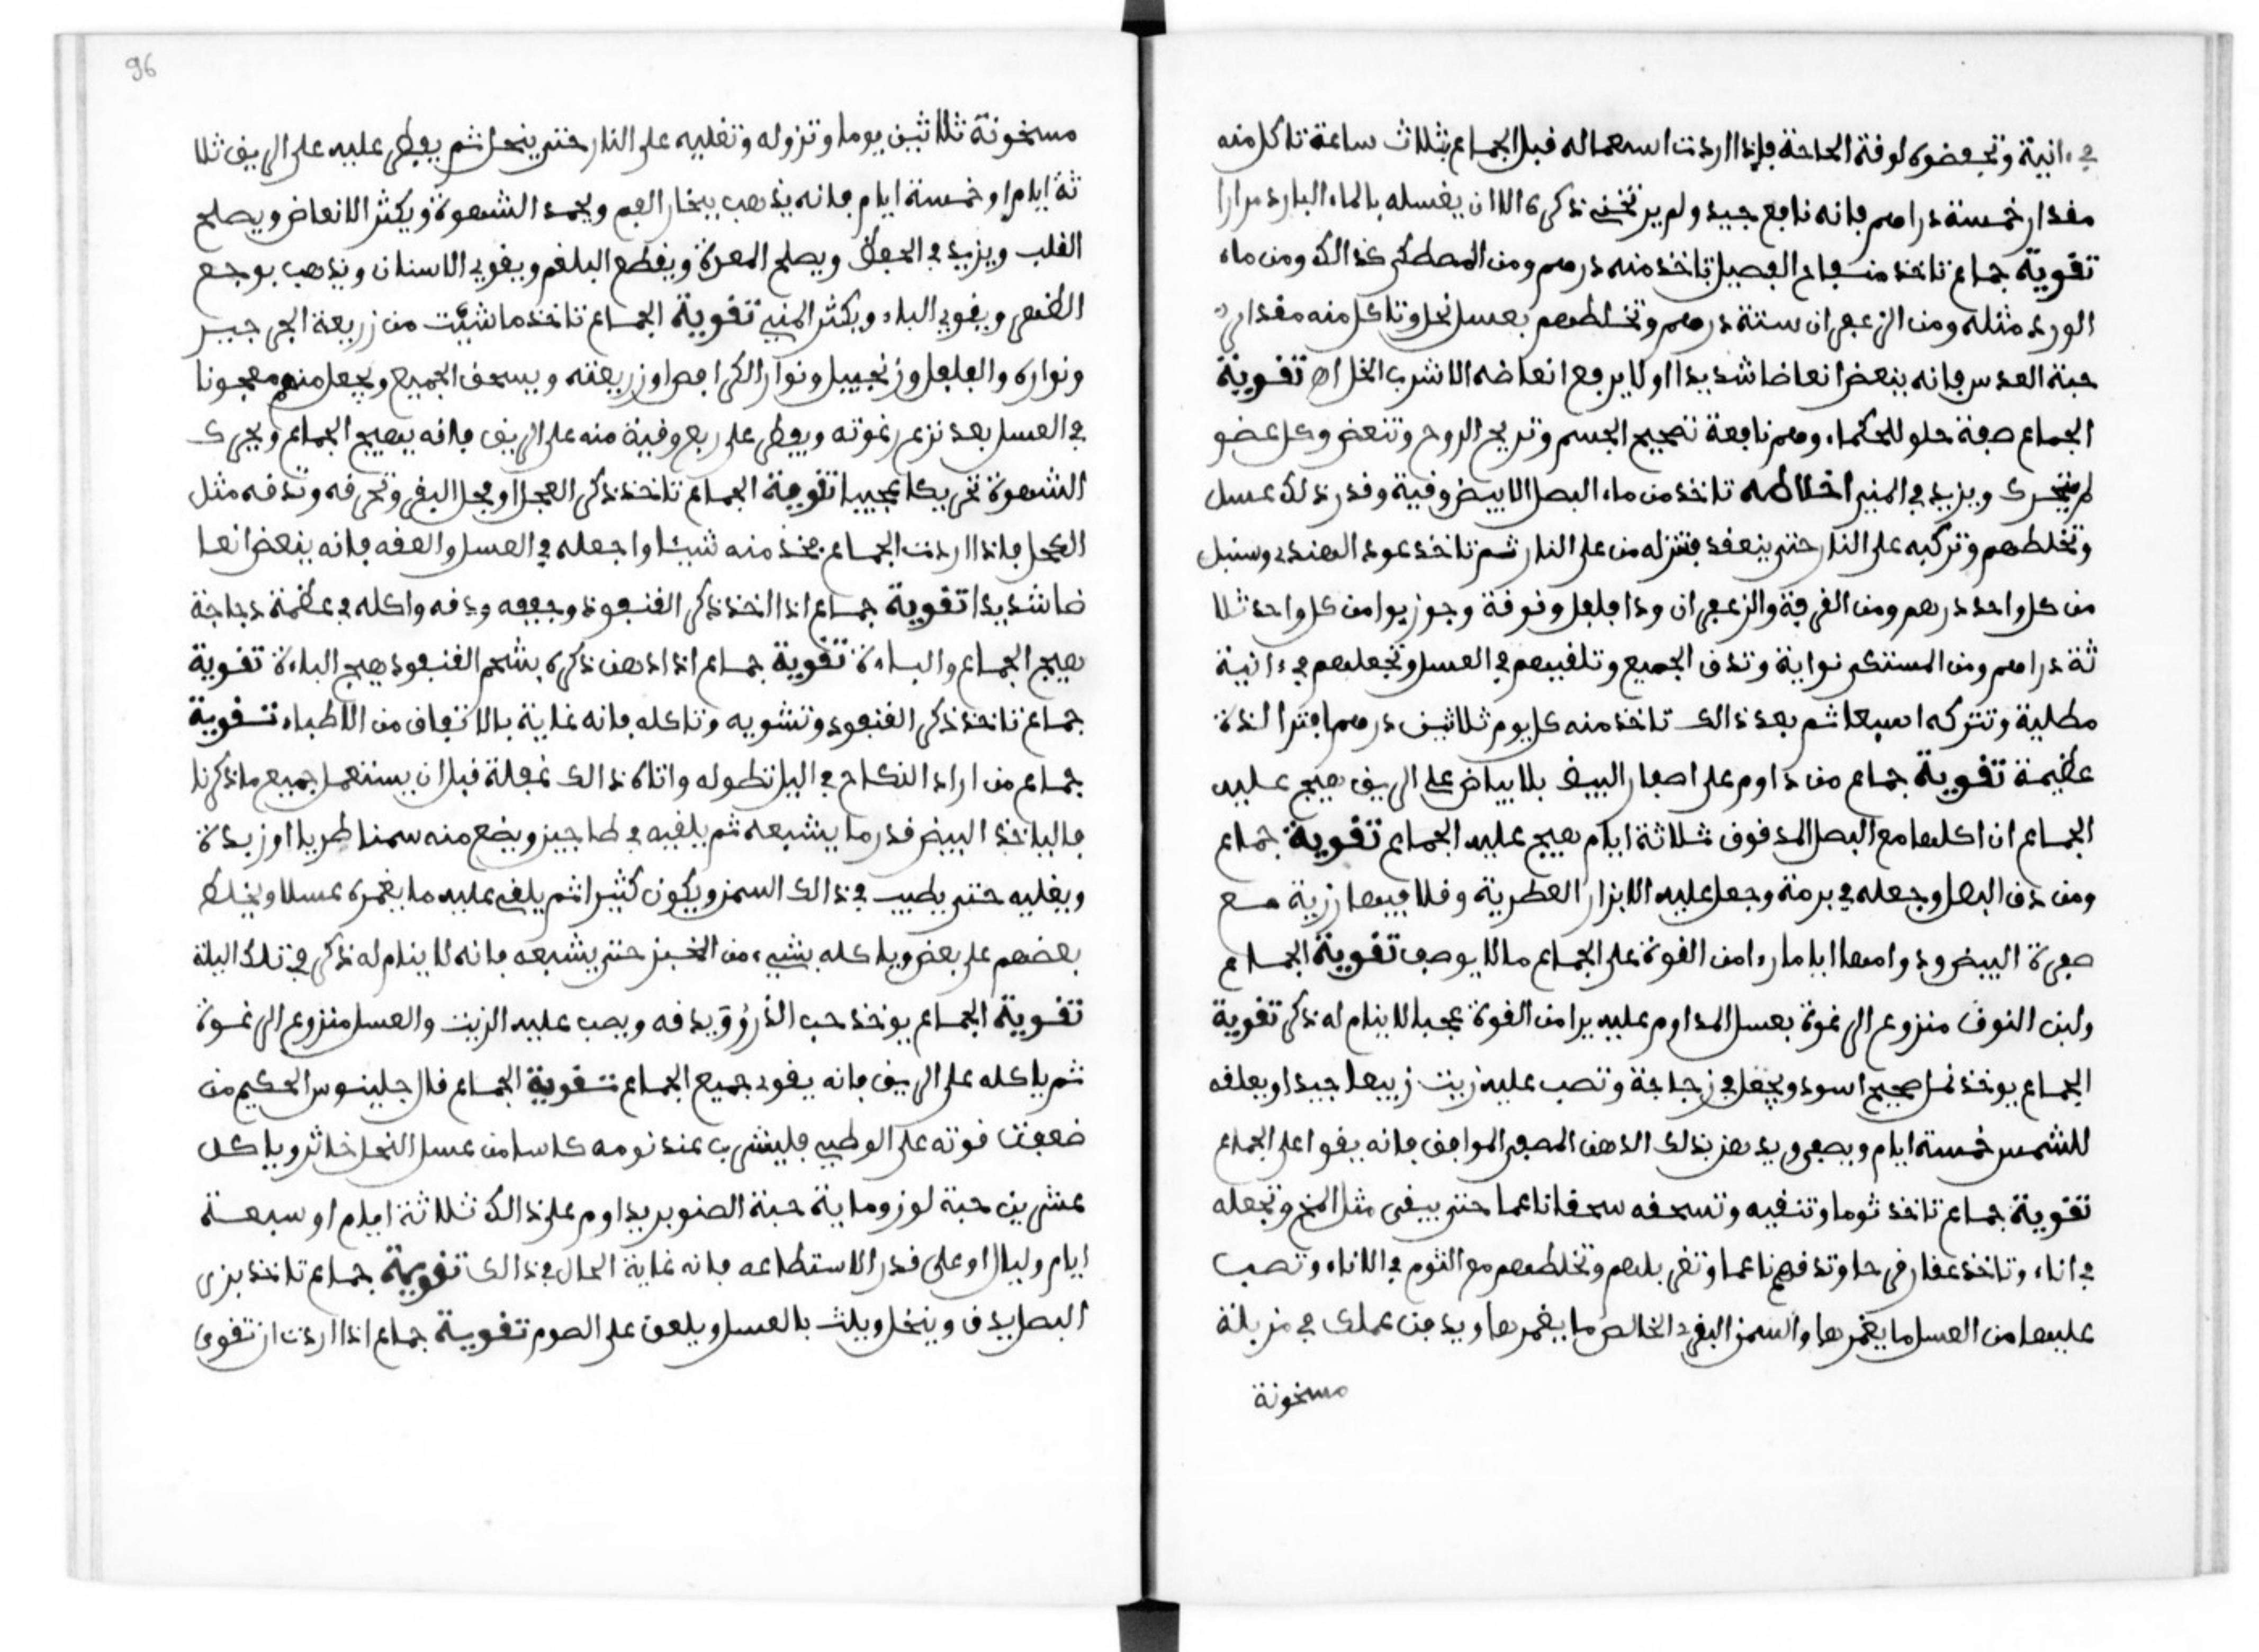 في ءانية وتحفضوه لوفة الحاجة فإذا اردت اسعماله فبل الجماع بثلاث ساعة تاكل منه
مفدار خمسة دراهم فإنه نافع جيد ولم يرتخي ذكره الا ان يغسله بالماء البارد مرارا
تقوية جماع تاخذ من الفصيل تاخذ منه درهم ومن المصطكى كذالك ومن ماء
الورد مثله ومن الزعفران ستة درهم وتخلطهم بعسل نحل وتاكل منه مفدار
حبة العدس فإنه ينعض انعاضا شديدا اولا يرفع انعاضه الا شرب الخل اه تقوية
الجماع صفة حلو للحكماء وهم نافعة تصحيح الجسم وتريح الروح وتنعض وكل عضو
لم يتحرك ويزيد في المني اخلاطه تاخذ من ماء البصل الابيض وفية وفدر ذلك عسل
وتخلطهم وتركبه على النار حتى ينعفد فتنزله من على النار ثم تاخذ عود الهندي وسنبل
من كل واحد درهم ومن الفرفة والزعفران ودا فلفل ونوفة وجوز بوا من كل واحد ثلا
ثة دراهم ومن المستكى نواية وتدف الجميع وتلفيهم في العسل وتجعلهم في ءانية
مطلية وتتركه اسبعا ثم بعد ذالك تاخذ منه كل يوم ثلاثين درهما فترا لذة
عظيمة تقوية جماع من داوم على اصفار البيض بلا بياض على الريف هيج عليه
الجماع ان اكلها مع البصل المدفوف ثلاثة ايام هيج عليه الجماع تقوية جماع
ومن دف البصل وجعله في برمة وجعل عليه الابزار العطرية وفلا فيها زرية مع
صفرة البيض ودوامها اياما رءا من الفوة على الجماع ما لا يوصف تقوية الجماع
ولبن النوف منزوع الرغوة بعسل المداوم عليه يرا من الفوة عجبا لا ينام له ذكر تقوية
الجماع يوخذ نمل صحيح اسود ويجعل في زجاجة وتصب عليه زيت زيبفا جيدا ويعلفه
للشمس خمسة ايام ويصفى ويدهن بذلك الدهن المصفى الموافف فإنه يفوا على الجماع
تقوية جماع تاخذ ثوما وتنفيه وتسحفه سحفا ناعما حتى يبفى مثل المخ وتجعله
في اناء وتاخذ عفار فرحا وتدفهم ناعما وتغربلهم وتخلطهم مع الثوم في الاناء وتصب
عليها من العسل ما يغمرها والسمن البفري الخالص ما يغمرها ويدفن عملك في مزبلة
مسخونة
96
مسخونة ثلاثين يوما وتزوله وتغليه على النار حتى ينحل ثم يعطى عليه على الريف ثلا
ثة ايام او خمسة ايام فإنه يذهب ببخار الفم ويجمد الشهوة ويكثر الانعاض ويصلح
الفلب ويزيد في الحفظ ويصلح المعدة ويفطع البلغم ويفوي الاسنان ويذهب بوجع
الظهر ويفوي الباء ويكثر المني تقوية الجماع تاخذ ما شيت من زريعة الجرجير
ونواره والفلفل وزنجبيل ونوار الكرافص او زريعته ويسحف الجميع ويجعل منهم معجونا
في العسل بعد نزع رغوته ويعطى على ربع وفية منه على الريف فإنه يهيج الجماع ويحرك
الشهوة تحريكا عجيبا تقوية الجماع تاخذ ذكر العجل او فحل البفر وتحرفه وتدفه مثل
الكحل فإذا اردت الجماع فخذ منه شيئا واجعله في العسل والعفه فإنه ينعض انعا
ضا شديدا تقوية جماع اذا اخذ ذكر الفنفوذ وجففه ودفه واكله في عظمة دجاجة
هيج الجماع والباءة تقوية جماع اذا ادهن ذكره بشحم الفنفوذ هيج الباءة تقوية
جماع تاخذ ذكر الفنفود وتشويه وتاكله فإنه غاية بالاتفاف من الاطباء تقوية
جماع من اراد النكاح في اليل تطوله واتاه ذالك غفلة فبل ان يستعمل جميع ما ذكرنا
فالياخذ البيض فدر ما يشبعه ثم يلفيه في طاجيز ويضع منه سمنا طريا او زبدة
ويغليه حتى يطيب في ذالك السمن ويكون كثيرا ثم يلفى عليه ما يغمره عسلا ويخلط
بعضهم على بعض وياكله بشيء من الخبز حتى يشبعه فإنه لا ينام له ذكر في تلك اليلة
تقوية الجماع يوخذ حب الذروٯ يدفه ويصب عليه الزيت والعسل منزوع الرغوة
ثم ياكله على الريف فإنه يفود جميع الجماع تقوية الجماع فال جلينوس الحكيم من
ضعفت فوته على الوطيء فليشرب عند نومه كاسا من عسل النحل خاثر وياكل
عشرين حبة لوز وماية حبة الصنوبر يداوم على ذالك ثلاثة ايام او سبعة
ايام وليال او على فدر الاستطاعه فإنه غاية الحال في ذالك تقوية جماع تاخذ بزر
البصل يدف وينخل ويلث بالعسل ويلعف على الصوم تقوية جماع اذا اردت ان تفوي